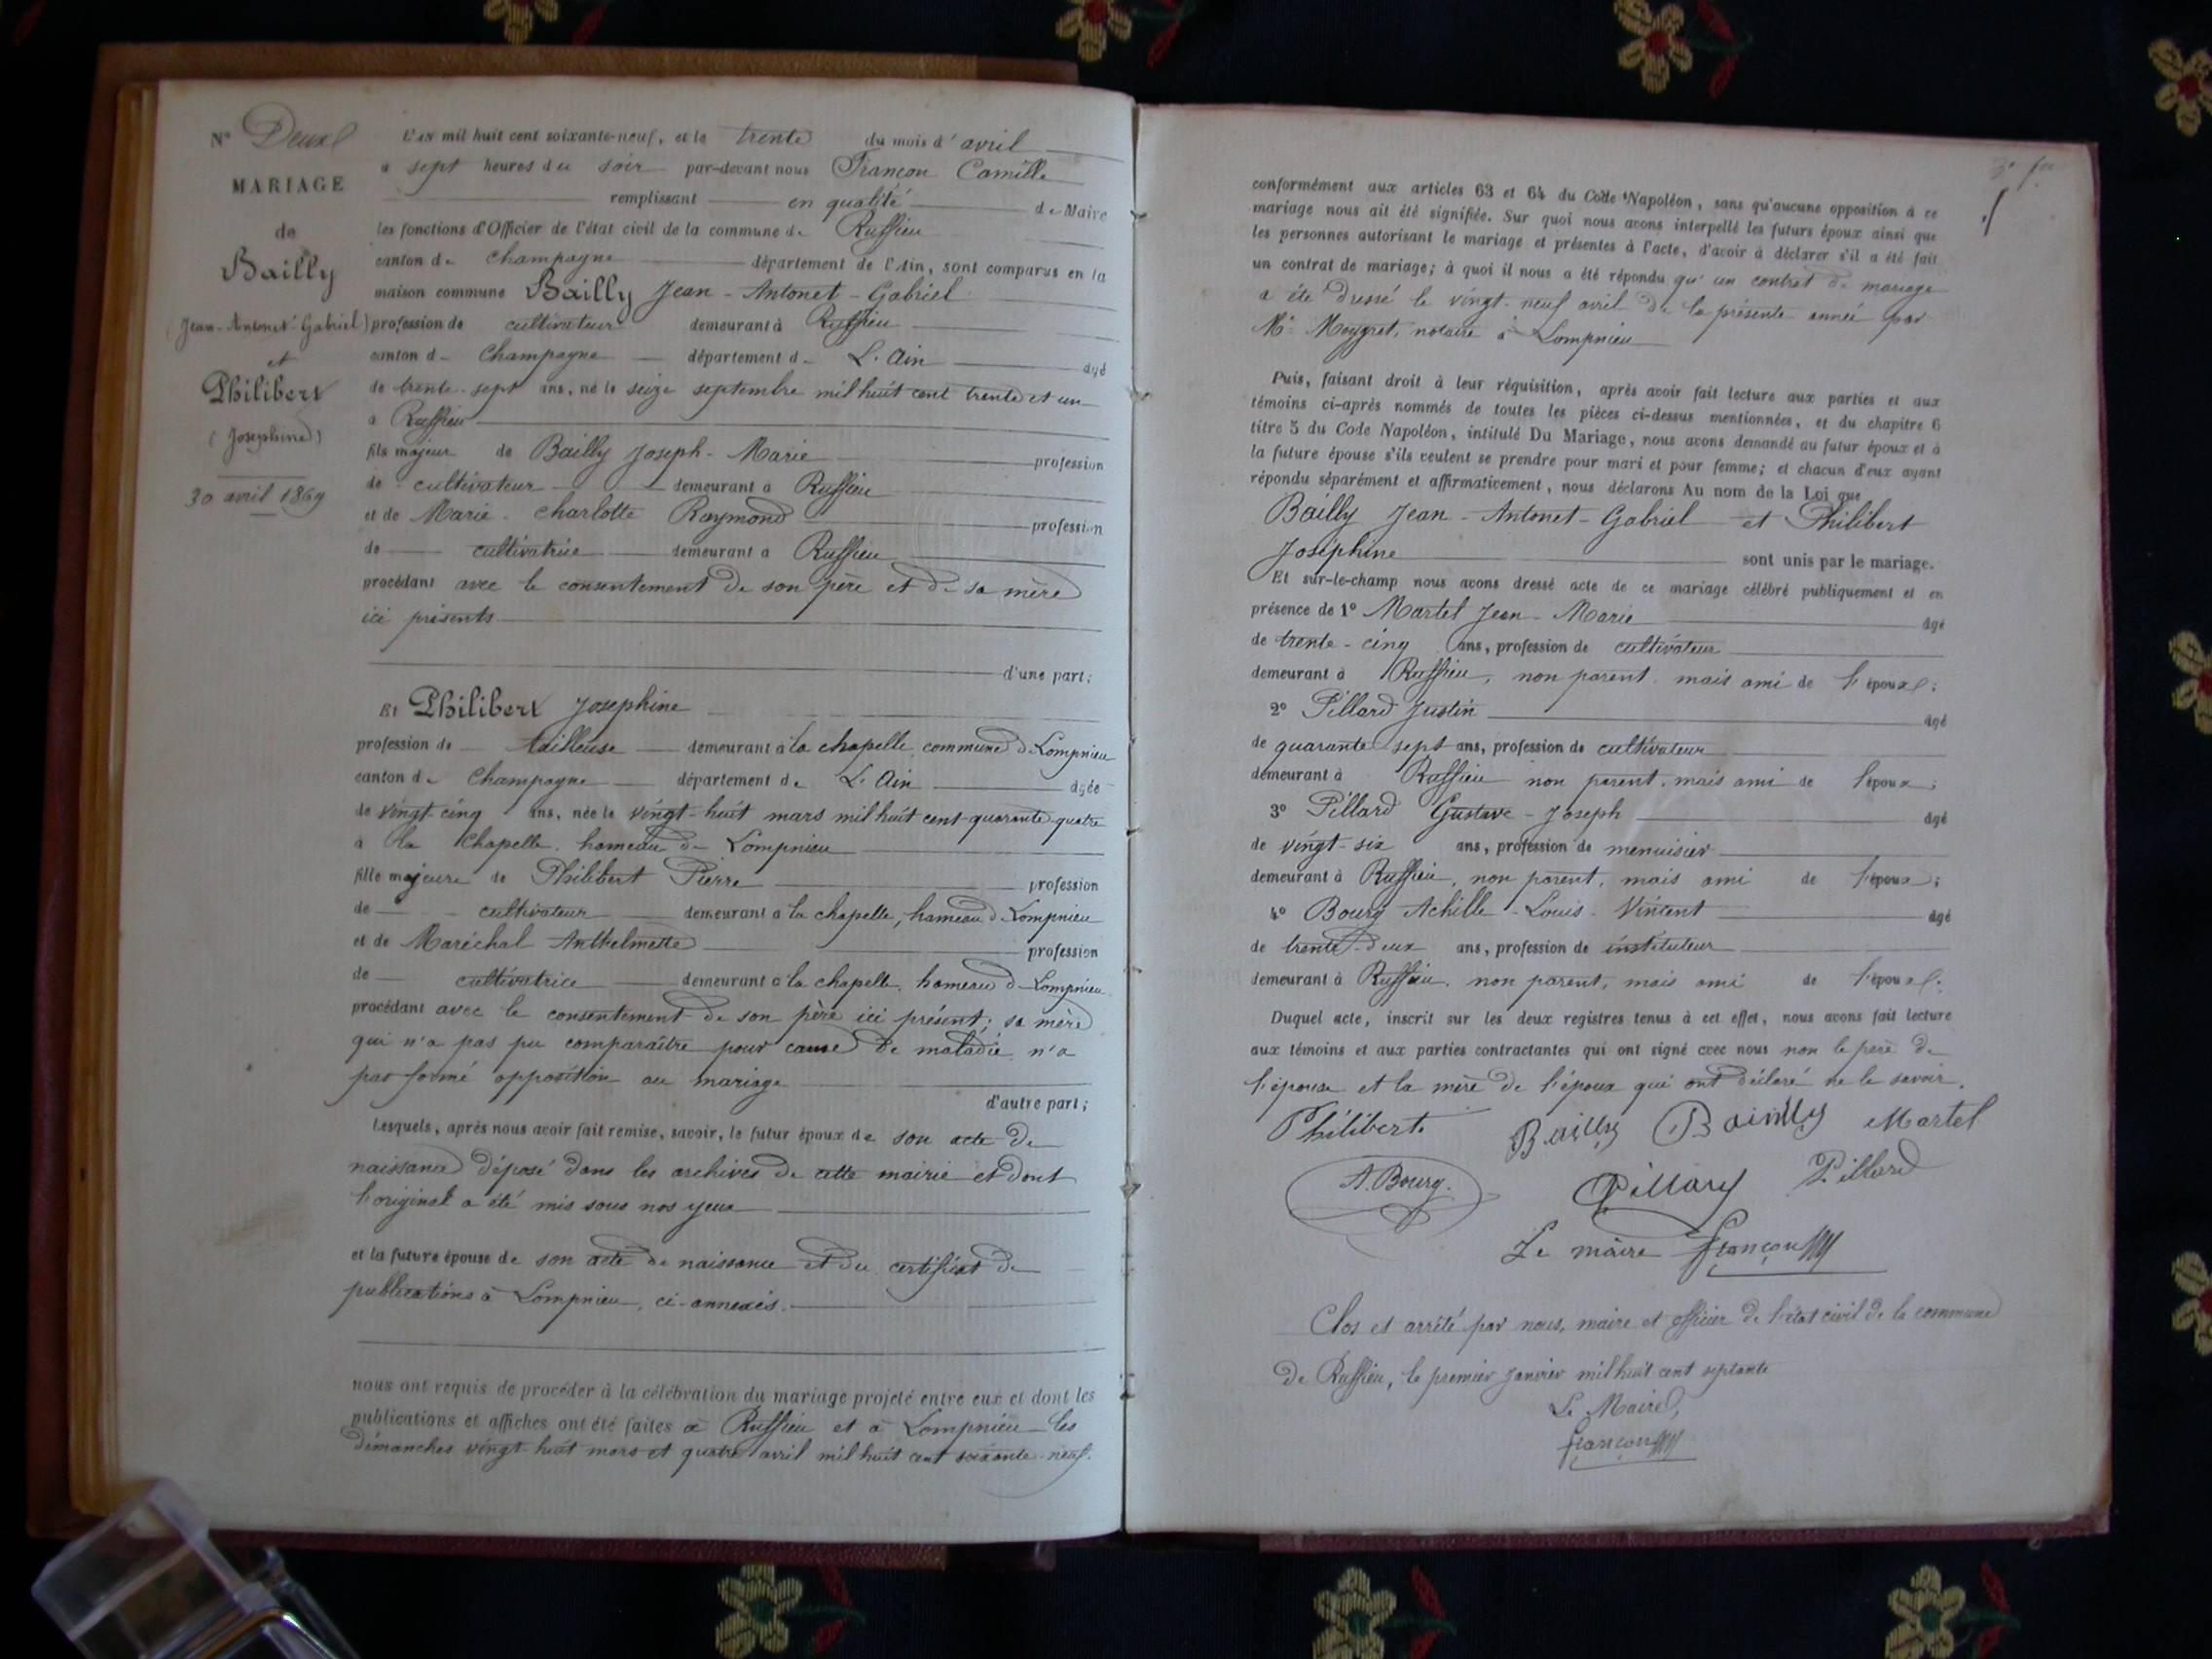 N° Deux
MARIAGE
de
Bailly
(Jean-Antonet-Gabriel)
et
Philibert
(Josephine)
30 avril 1869
L'an mil huit cent soixante-neuf, et le trente du mois d'avril
à sept heures du soir par-devant nous Françon Camille
remplissant en qualité de Maire
les fonctions d'Officier de l'état civil de la commune de Ruffieu
canton de Champagne département de l'Ain, sont comparus en la
maison commune Bailly Jean-Antonet-Gabriel
profession de cultivateur demeurant à Ruffieu
canton de Champagne département de L'Ain âgé
de trente-sept ans, né le seize septembre mil huit cent trente et un
à Ruffieu
fils majeur de Bailly Joseph-Marie profession
de cultivateur demeurant à Ruffieu
et de Marie-Charlotte Raymond profession
de cultivatrice demeurant à Ruffieu
procédant avec le consentement de son père et de sa mère
ici présents
d'une part;
Et Philibert Josephine
profession de tailleuse demeurant à la chapelle, commune de Lompnieu
canton de Champagne département de L'Ain âgée
de vingt-cinq ans, née le vingt-huit mars mil huit cent quarante-quatre
à la Chapelle, hameau de Lompnieu
fille majeure de Philibert Pierre profession
de cultivateur demeurant à la chapelle, hameau de Lompnieu
et de Maréchal Anthelmette profession
de cultivatrice demeurant à la chapelle, hameau de Lompnieu
procédant avec le consentement de son père ici présent; sa mère
qui n'a pas pu comparaître pour cause de maladie n'a
pas formé opposition au mariage
d'autre part;
Lesquels, après nous avoir fait remise, savoir, le futur époux de son acte de
naissance déposé dans les archives de cette mairie et dont
l'original a été mis sous nos yeux
et la future épouse de son acte de naissance et du certificat de
publications à Lompnieu, ci-annexés.
nous ont requis de procéder à la célébration du mariage projeté entre eux et dont les
publications et affiches ont été faites à Ruffieu et à Lompnieu les
dimanches vingt huit mars et quatre avril mil huit cent soixante-neuf.
conformément aux articles 63 et 64 du Code Napoléon, sans qu'aucune opposition à ce
mariage nous ait été signifiée. Sur quoi nous avons interpellé les futurs époux ainsi que
les personnes autorisant le mariage et présentes à l'acte, d'avoir à déclarer s'il a été fait
un contrat de mariage; à quoi il nous a été répondu qu'un contrat de mariage
a été dressé le vingt-neuf avril de la présente année par
Me Meygret, notaire à Lompnieu
Puis, faisant droit à leur réquisition, après avoir fait lecture aux parties et aux
témoins ci-après nommés de toutes les pièces ci-dessus mentionnées, et du chapitre 6
titre 5 du Code Napoléon, intitulé Du Mariage, nous avons demandé au futur époux et à
la future épouse s'ils veulent se prendre pour mari et pour femme; et chacun d'eux ayant
répondu séparément et affirmativement, nous déclarons Au nom de la Loi que
Bailly Jean-Antonet-Gabriel et Philibert
Joséphine sont unis par le mariage.
Et sur-le-champ nous avons dressé acte de ce mariage célébré publiquement et en
présence de 1° Martel Jean-Marie âgé
de trente-cinq ans, profession de cultivateur
demeurant à Ruffieu, non parent mais ami de l'époux;
2° Pillard Justin âgé
de quarante sept ans, profession de cultivateur
demeurant à Ruffieu non parent, mais ami de l'époux;
3° Pillard Gustave-Joseph âgé
de vingt-six ans, profession de menuisier
demeurant à Ruffieu, non parent, mais ami de l'époux;
4° Bourg Achille-Louis-Vincent âgé
de trente-deux ans, profession de instituteur
demeurant à Ruffieu, non parent, mais ami de l'époux.
Duquel acte, inscrit sur les deux registres tenus à cet effet, nous avons fait lecture
aux témoins et aux parties contractantes qui ont signé avec nous non le père de
l'épouse et la mère de l'époux qui ont déclaré ne le savoir.
Philibert. Bailly Bailly Martel
A. Bourg. Pillard Pillard
Le maire françon
Clos et arrêté par nous, maire et officier de l'état civil de la commune
de Ruffieu, le premier Janvier mil huit cent septante
Le Maire,
françon